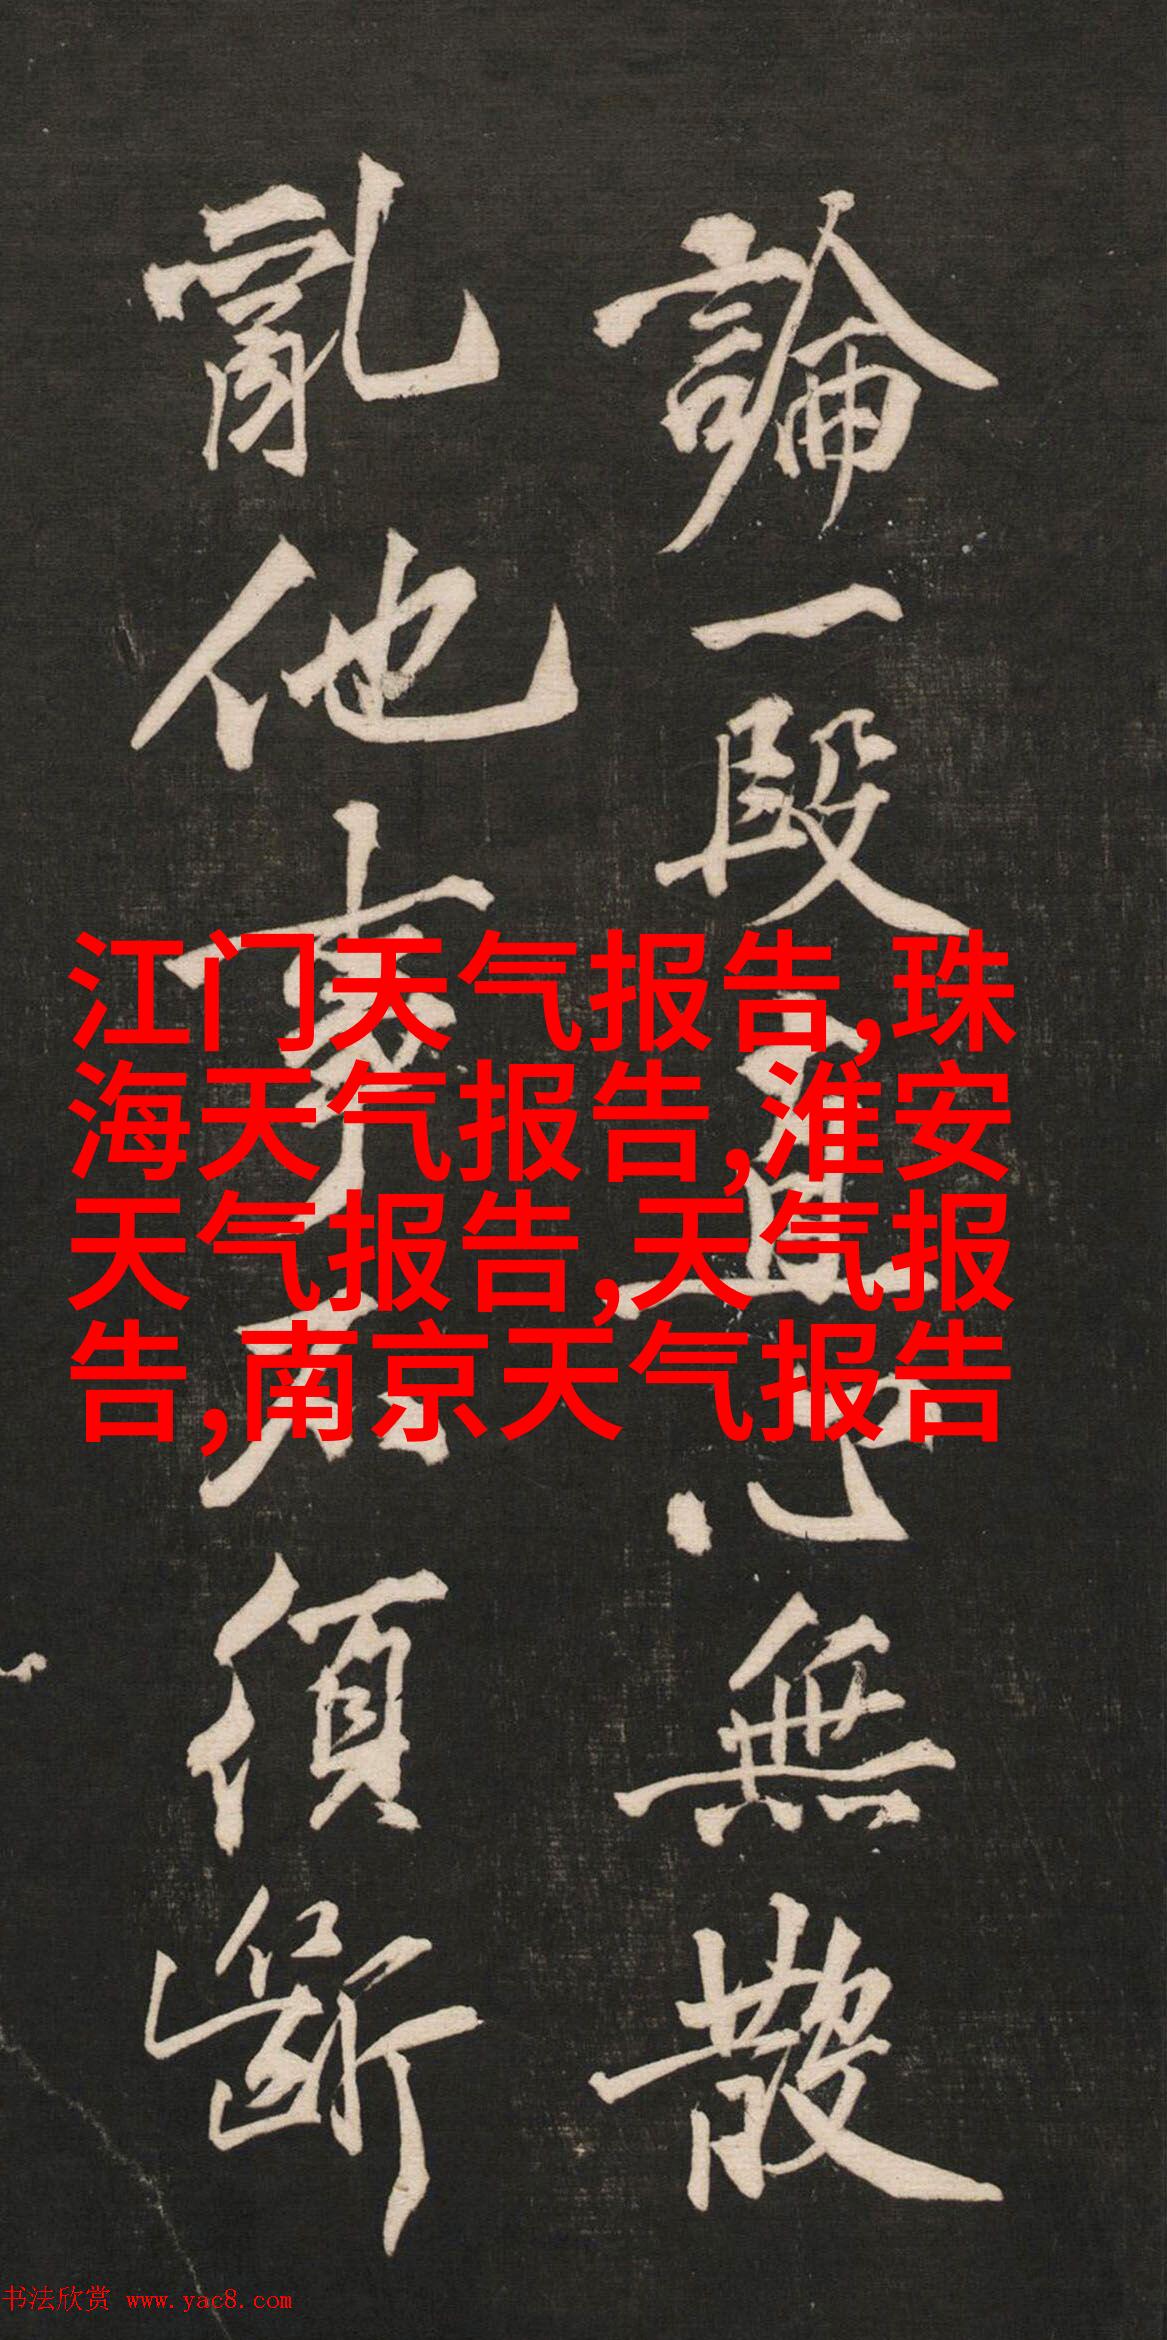 論一段直心無散
亂他事不須斷
江门天气报告,珠
海天气报告,淮安
天气报告,天气报
告,南京天气报告
书法欣赏 www.yac8.com